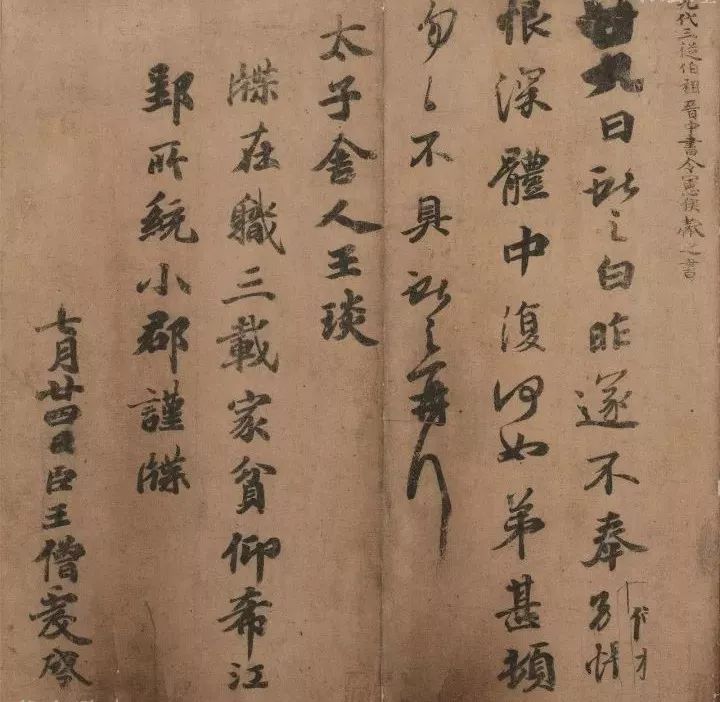 九代三從伯祖晉中書令憲侯獻之書
廿九日獻之白昨遂不奉別悵
恨深體中復何如弟甚頓
匆匆不具獻之再拜
太子舍人王琰
牒在職三載家貧仰希江
郢所統小郡謹牒
七月廿四日臣王僧虔啓